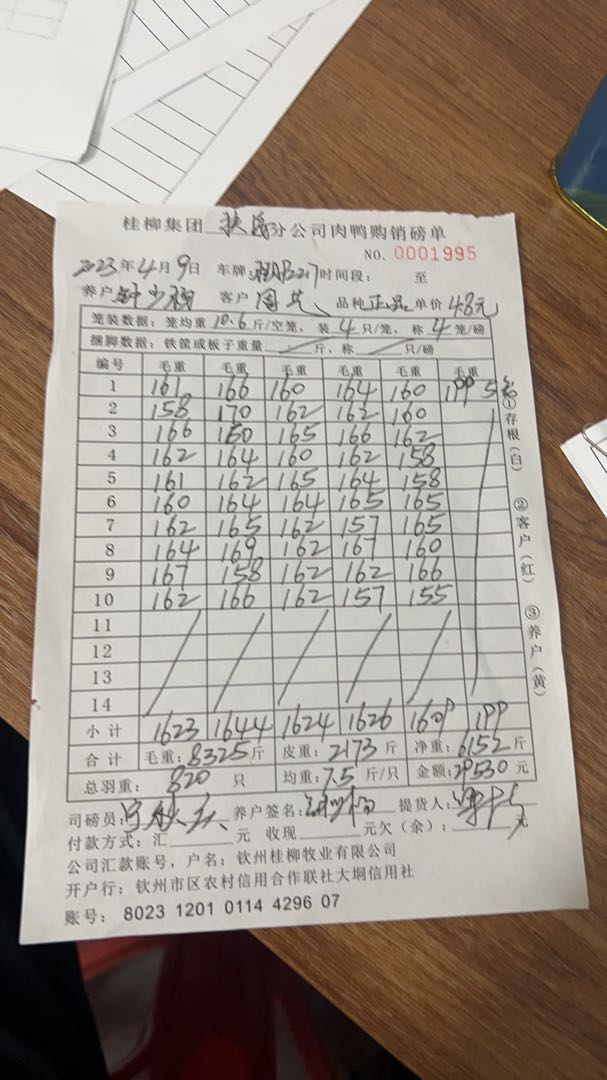 桂柳集团 扶民 分公司肉鸭购销磅单
NO. 0001995
2023年4月9日 车牌: 时间段: 至
养户 客户 品种 正品 单价 4.8元
笼装数据: 笼均重 10.6 斤/空笼, 装 4 只/笼, 称 4 笼/磅
捆脚数据: 铁筐或板子重量 斤, 称 只/磅
编号 毛重 毛重 毛重 毛重 毛重 毛重
1 161 166 160 164 160 199 5
2 158 170 162 162 160
3 166 160 165 166 162
4 162 164 160 162 158
5 161 162 165 164 158
6 160 164 164 165 165
7 162 165 162 157 165
8 164 169 162 167 160
9 167 158 162 162 166
10 162 166 162 157 155
11
12
13
14
小计 1623 1644 1624 1626 1609 199
合计 毛重: 8325斤 皮重: 2173 斤 净重: 6152 斤
总羽重: 820 只 均重: 7.5 斤/只 金额: 29530 元
司磅员: 养户签名: 提货人:
付款方式: 汇 元 收现 元欠(余): 元
公司汇款账号, 户名: 钦州桂柳牧业有限公司
开户行: 钦州市区农村信用合作联社大垌信用社
账号: 8023 1201 0114 4296 07
①存根(白) ②客户(红) ③养户(黄)